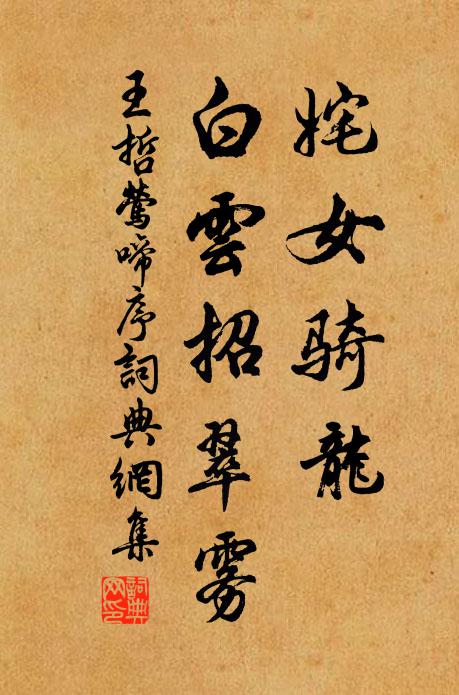 姹女騎龍
白雲招翠雾
王哲鶯啼序詞典網集
詞典网印